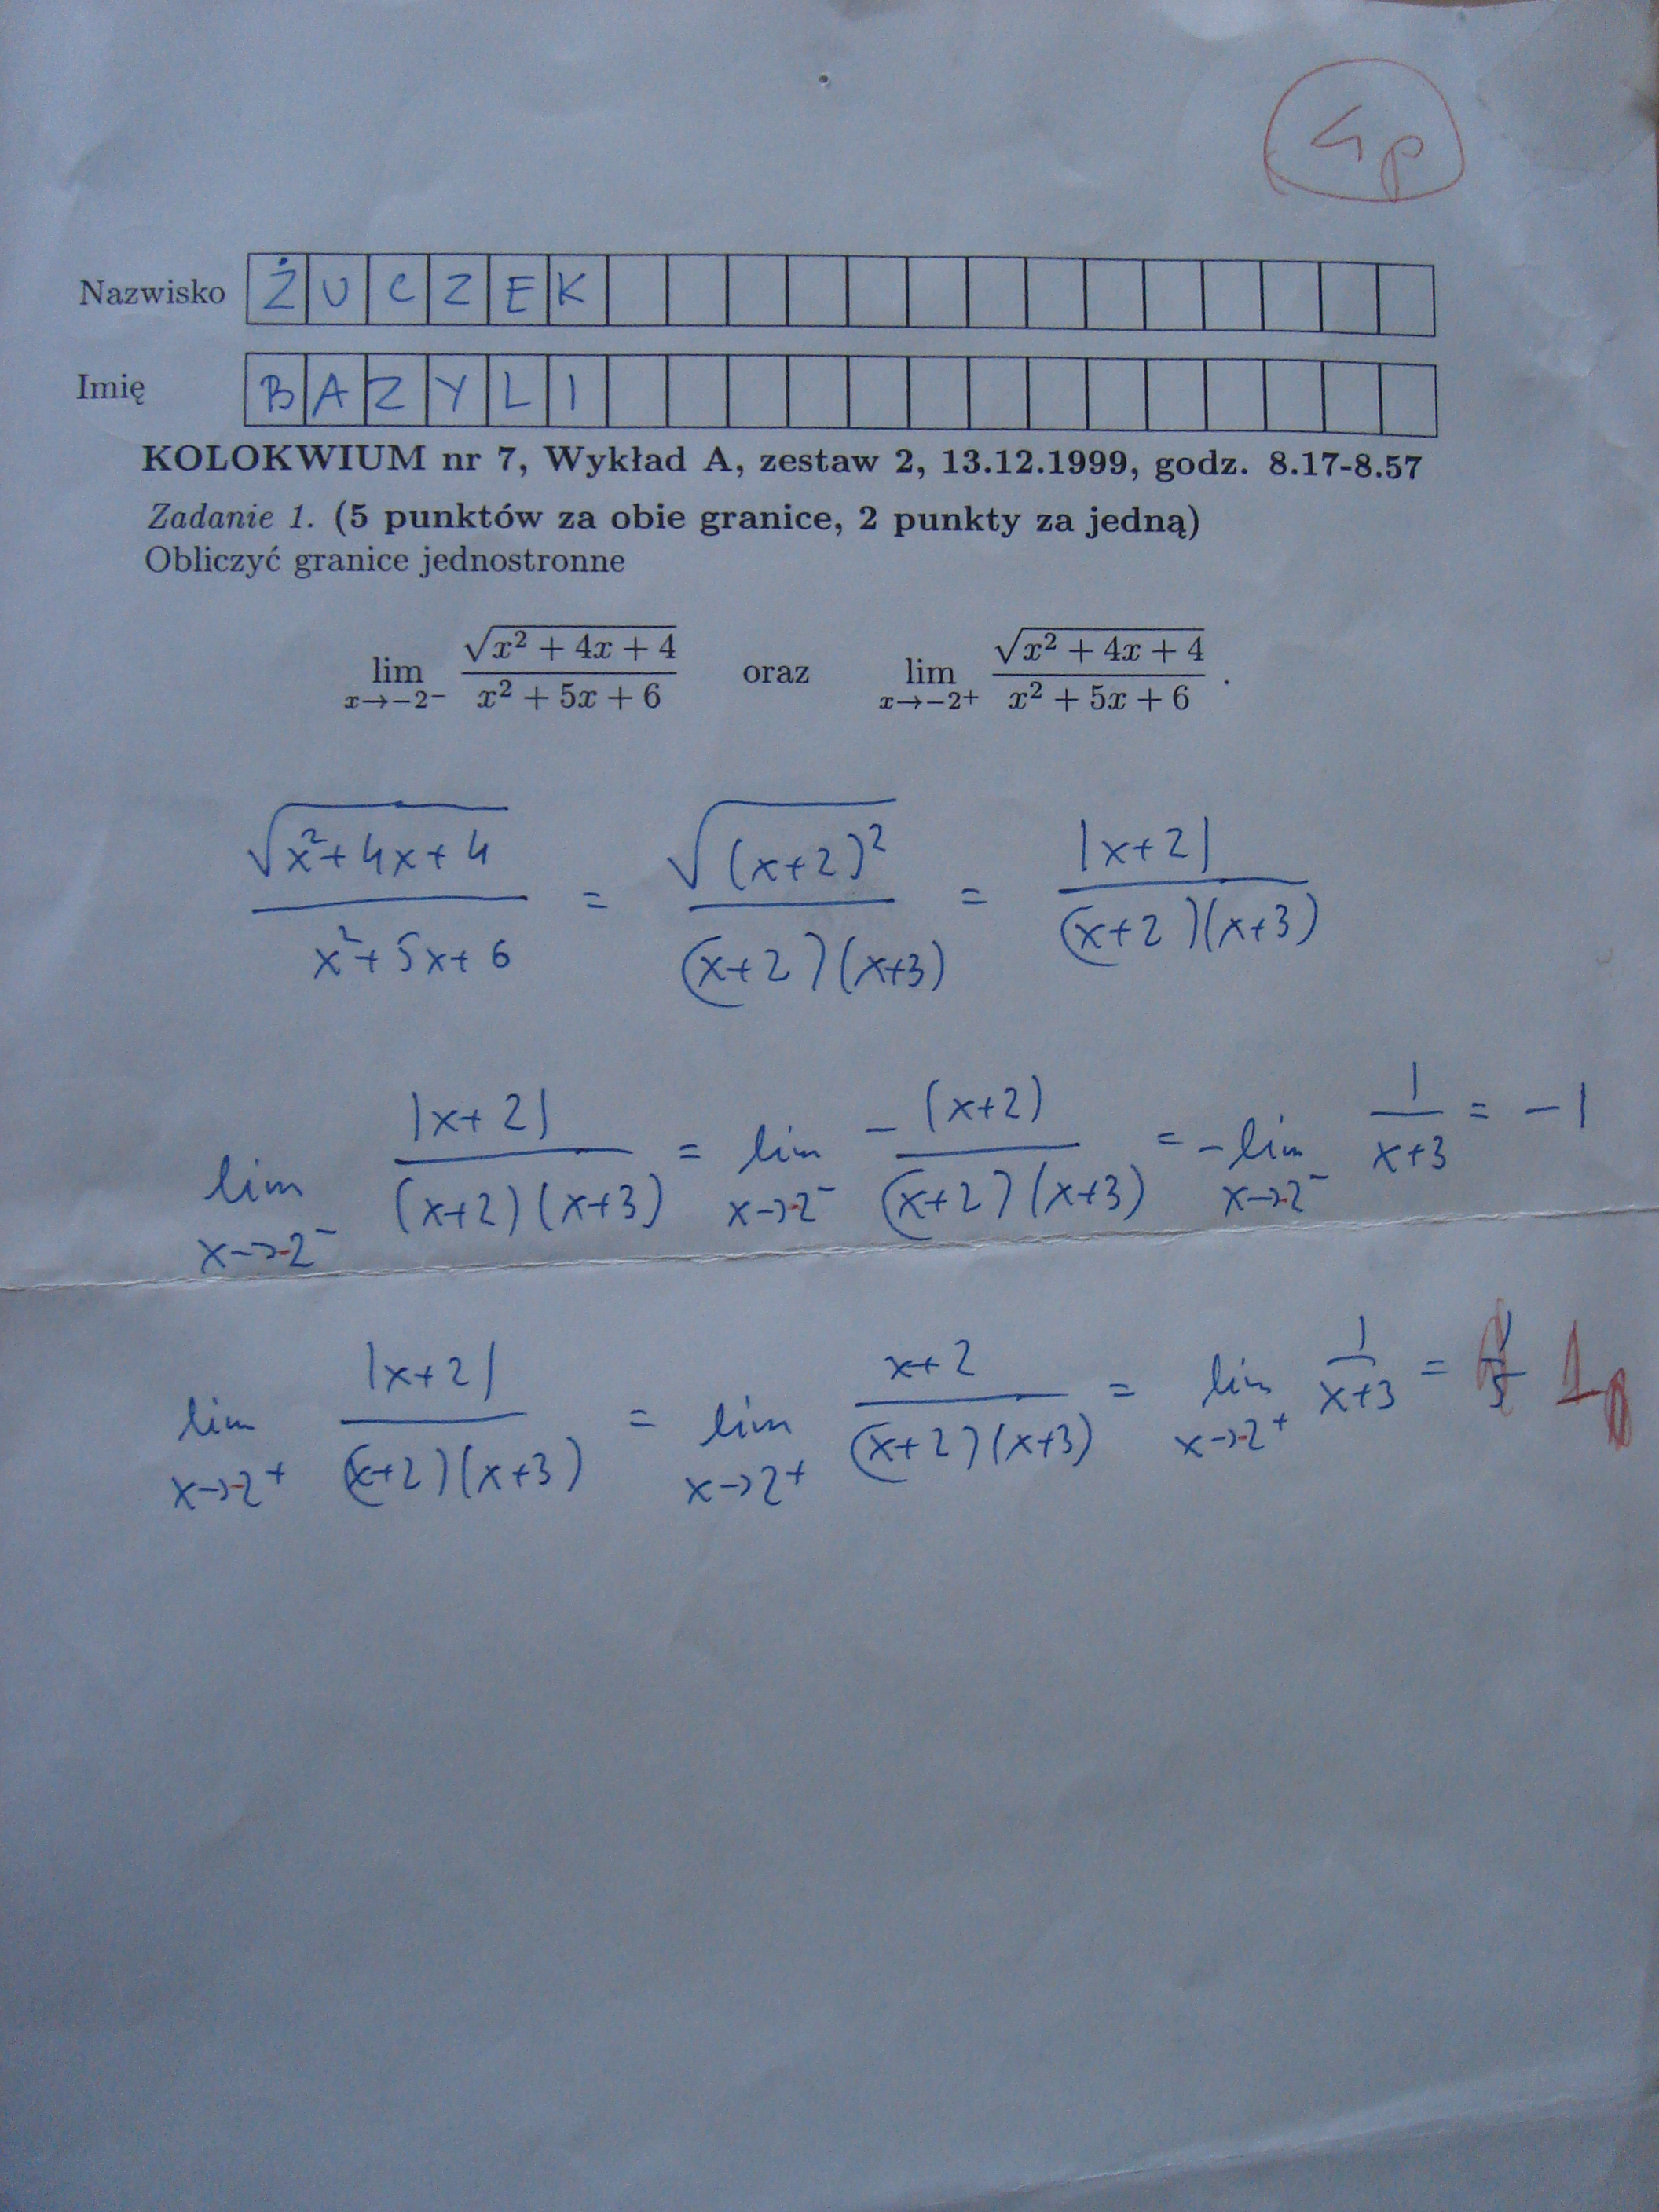 4p
Nazwisko ŻUCZEK
Imię BAZYLI
KOLOKWIUM nr 7, Wykład A, zestaw 2, 13.12.1999, godz. 8.17-8.57
Zadanie 1. (5 punktów za obie granice, 2 punkty za jedną)
Obliczyć granice jednostronne
lim_{x→−2−} √(x² + 4x + 4) / (x² + 5x + 6) oraz lim_{x→−2+} √(x² + 4x + 4) / (x² + 5x + 6) .
√(x²+4x+4) / (x²+5x+6) = √((x+2)²) / ((x+2)(x+3)) = |x+2| / ((x+2)(x+3))
lim_{x→-2⁻} |x+2| / ((x+2)(x+3)) = lim_{x→-2⁻} −(x+2) / ((x+2)(x+3)) = −lim_{x→-2⁻} 1/(x+3) = −1
lim_{x→-2⁺} |x+2| / ((x+2)(x+3)) = lim_{x→2⁺} (x+2) / ((x+2)(x+3)) = lim_{x→-2⁺} 1/(x+3) = 1/5 1